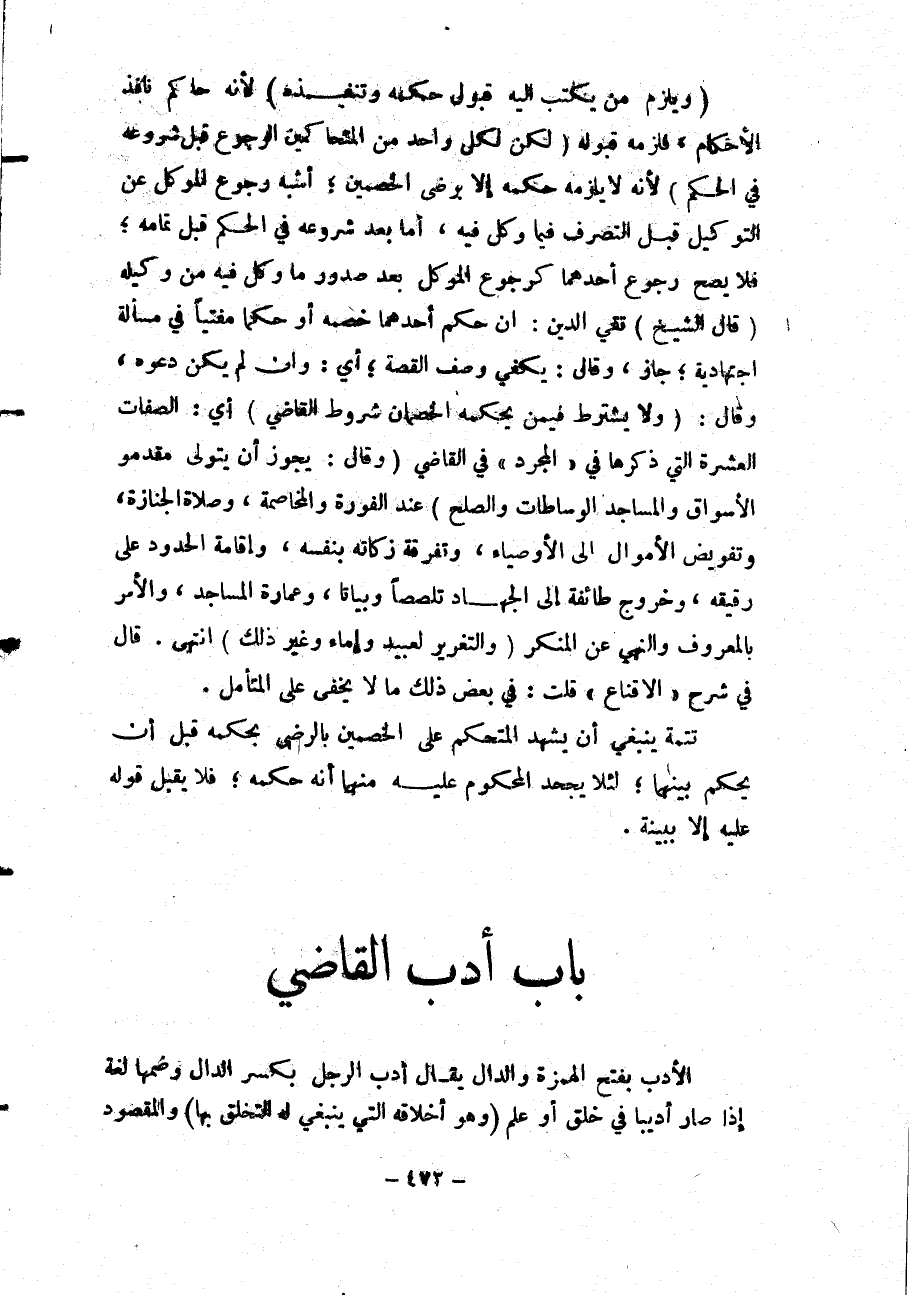 ( ويلزم من يكتب اليه قبول حكمه وتنفيــذه ) لأنه حاكم نافذ
الأحكام ، فلزمه قبوله ( لكن لكل واحد من المتحاكمين الرجوع قبل شروعه
في الحكم ) لأنه لا يلزمه حكمه إلا برضى الخصمين ؛ أشبه رجوع الموكل عن
التوكيل قبـل التصرف فيما وكل فيه ، أما بعد شروعه في الحكم قبل تمامه ؛
فلا يصح رجوع أحدهما كرجوع الموكل بعد صدور ما وكل فيه من وكيله
( قال الشيخ ) تقي الدين : ان حكم أحدهما خصمه أو حكما مفتياً في مسألة
اجتهادية ؛ جاز ، وقال : يكفي وصف القصة ؛ أي : وان لم يكن دعوه ،
وقال : ( ولا يشترط فيمن يحكمه الخصمان شروط القاضي ) أي : الصفات
العشرة التي ذكرها في « المجرد » في القاضي ( وقال : يجوز أن يتولى مقدمو
الأسواق والمساجد الوساطات والصلح ) عند الفورة والمخاصمة ، وصلاة الجنازة،
وتفويض الأموال الى الأوصياء ، وتفرقة زكاته بنفسه ، واقامة الحدود على
رقيقه ، وخروج طائفة إلى الجهــاد تلصصاً وبياتا ، وعمارة المساجد ، والأمر
بالمعروف والنهي عن المنكر ( والتغرير لعبيد وإماء وغير ذلك ) انتهى . قال
في شرح « الاقناع » قلت : في بعض ذلك ما لا يخفى على المتأمل .
تتمة ينبغي أن يشهد المتحكم على الخصمين بالرضى بحكمه قبل أن
يحكم بينهما ؛ لئلا يجحد المحكوم عليــه منهما أنه حكمه ؛ فلا يقبل قوله
عليه إلا ببينة .
باب أدب القاضي
الأدب بفتح الهمزة والدال يقـال أدب الرجل بكسر الدال وضمها لغة
إذا صار أديبا في خلق أو علم (وهو أخلاقه التي ينبغي له التخلق بها) والمقصود
– ٤٧٢ –